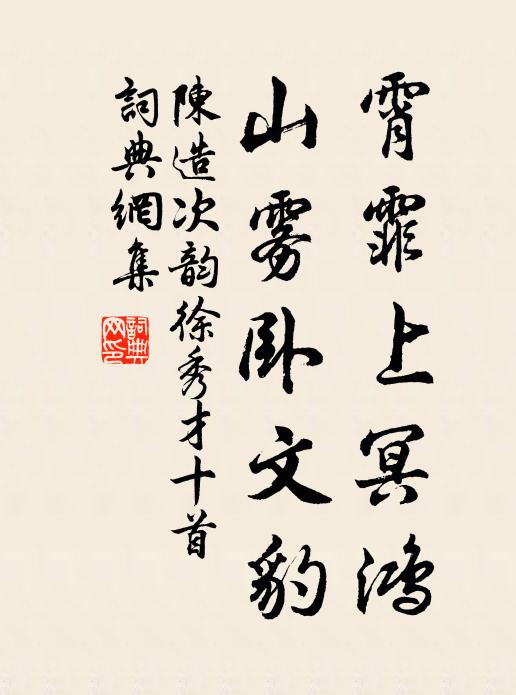 霄霏上冥鸿
山雾卧文豹
陳造次韵徐秀才十首
詞典網集
詞典网印